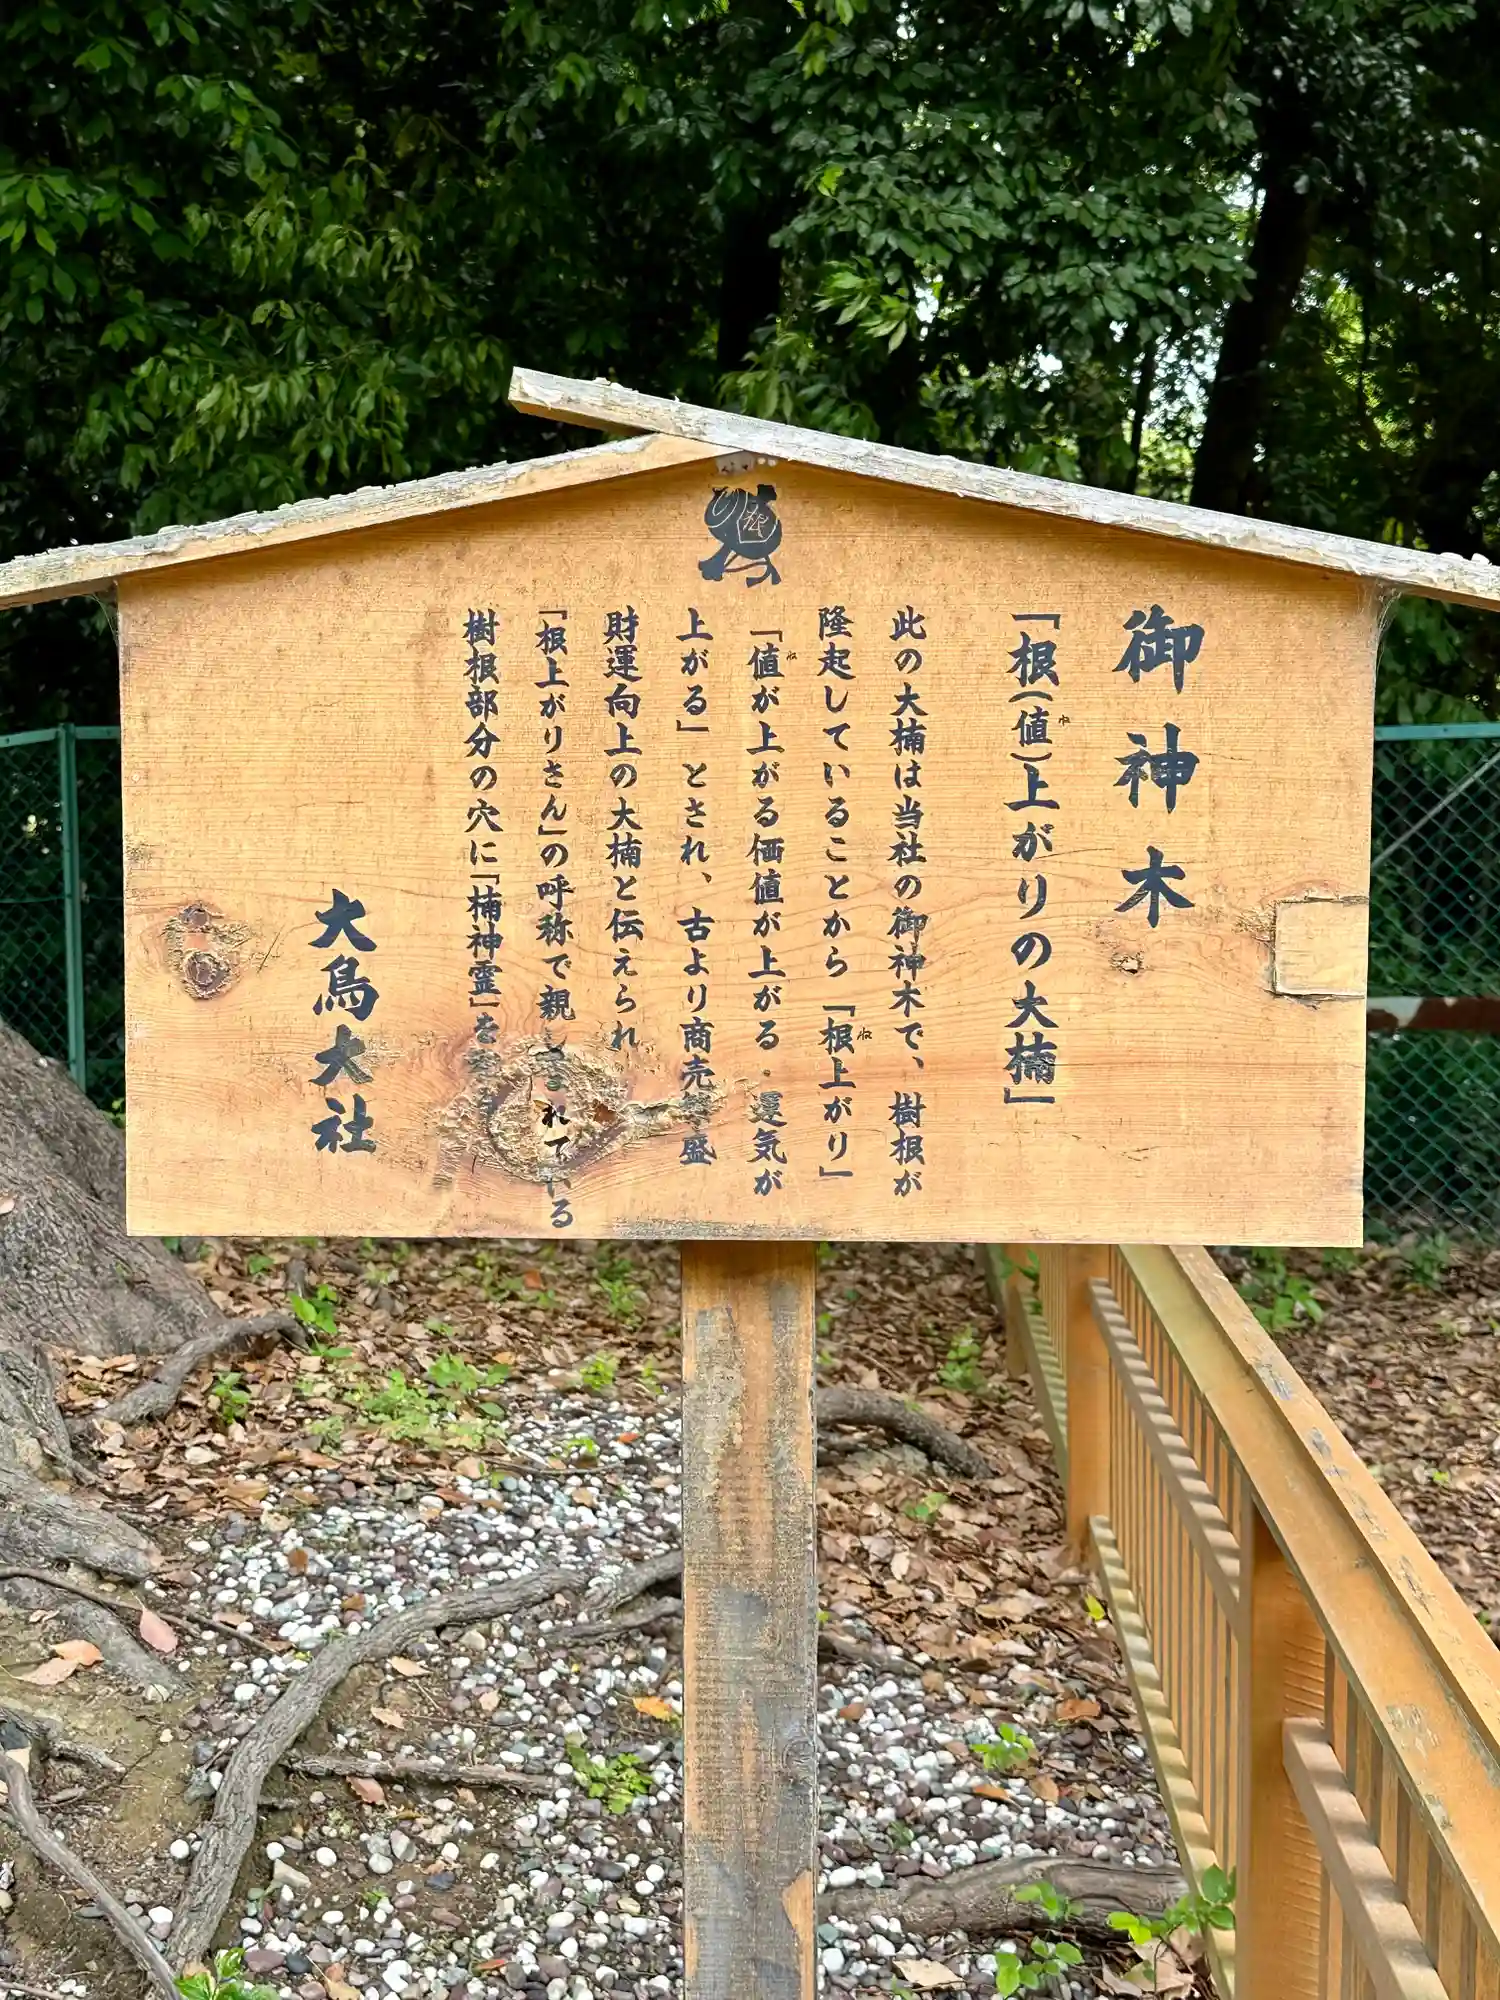 御神木
「根(値)上がりの大楠」
ね
此の大楠は当社の御神木で、樹根が
隆起していることから「根上がり」
ね
「値が上がる価値が上がる・運気が
ね
上がる」とされ、古より商売繁盛
財運向上の大楠と伝えられ
「根上がりさん」の呼称で親しまれている
樹根部分の穴に「楠神霊」を
大鳥大社
根